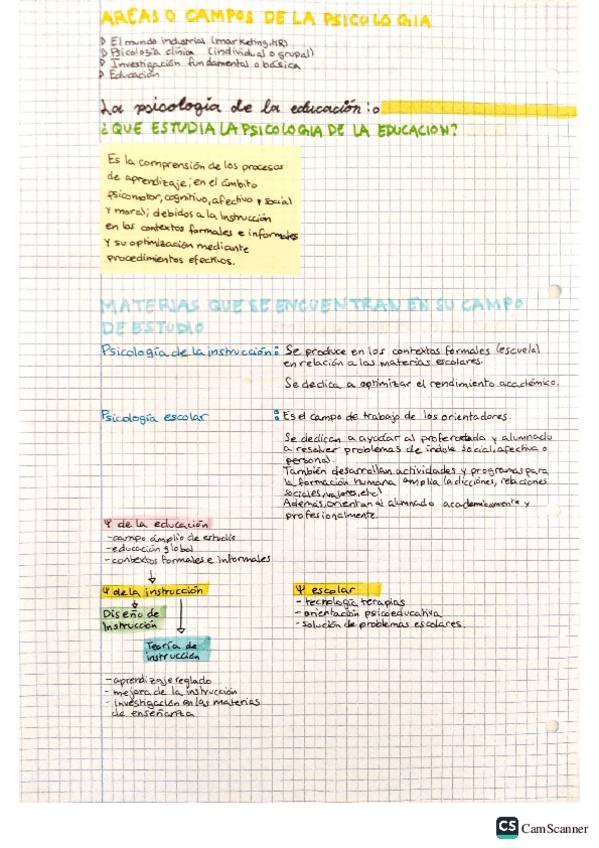 AREAS O CAMPOS DE LA PSICOLOGIA
El mundo industrial (marketing, HR)
Psicología clínica (individual o grupal)
Investigación fundamental o básica
Educación
La psicología de la educación:
¿QUE ESTUDIA LA PSICOLOGIA DE LA EDUCACION?
Es la comprensión de los procesos
de aprendizaje; en el ámbito
psicomotor, cognitivo, afectivo y social
y moral; debidos a la instrucción
en los contextos formales e informales
y su optimización mediante
procedimientos efectivos.
MATERIAS QUE SE ENCUENTRAN EN SU CAMPO
DE ESTUDIO
Psicología de la instrucción: Se produce en los contextos formales (escuela)
en relación a las materias escolares.
Se dedica a optimizar el rendimiento académico.
Psicología escolar : Es el campo de trabajo de los orientadores.
Se dedican a ayudar al profesorado y alumnado
a resolver problemas de índole social, afectiva o
personal.
También desarrollan actividades y programas para
la formación humana amplia (adicciones, relaciones
sociales, valores, etc)
Además, orientan al alumnado academicamente y
profesionalmente.
Ψ de la educación
- campo amplio de estudio
- educación global
- contextos formales e informales
Ψ de la instrucción
Diseño de
Instrucción
Teoría de
instrucción
- aprendizaje reglado
- mejora de la instrucción
- investigación en las materias
de enseñanza
Ψ escolar
- tecnología terapias
- orientación psicoeducativa
- solución de problemas escolares.
CS CamScanner